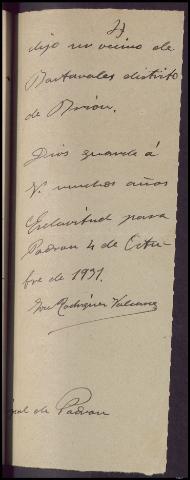 dijo un vecino de
Bastavales distrito
de Brión.
Dios guarde á
V. muchos años
Esclavitud para
Padron 4 de Octu-
bre de 1931.
José Rodríguez
pal de Padron